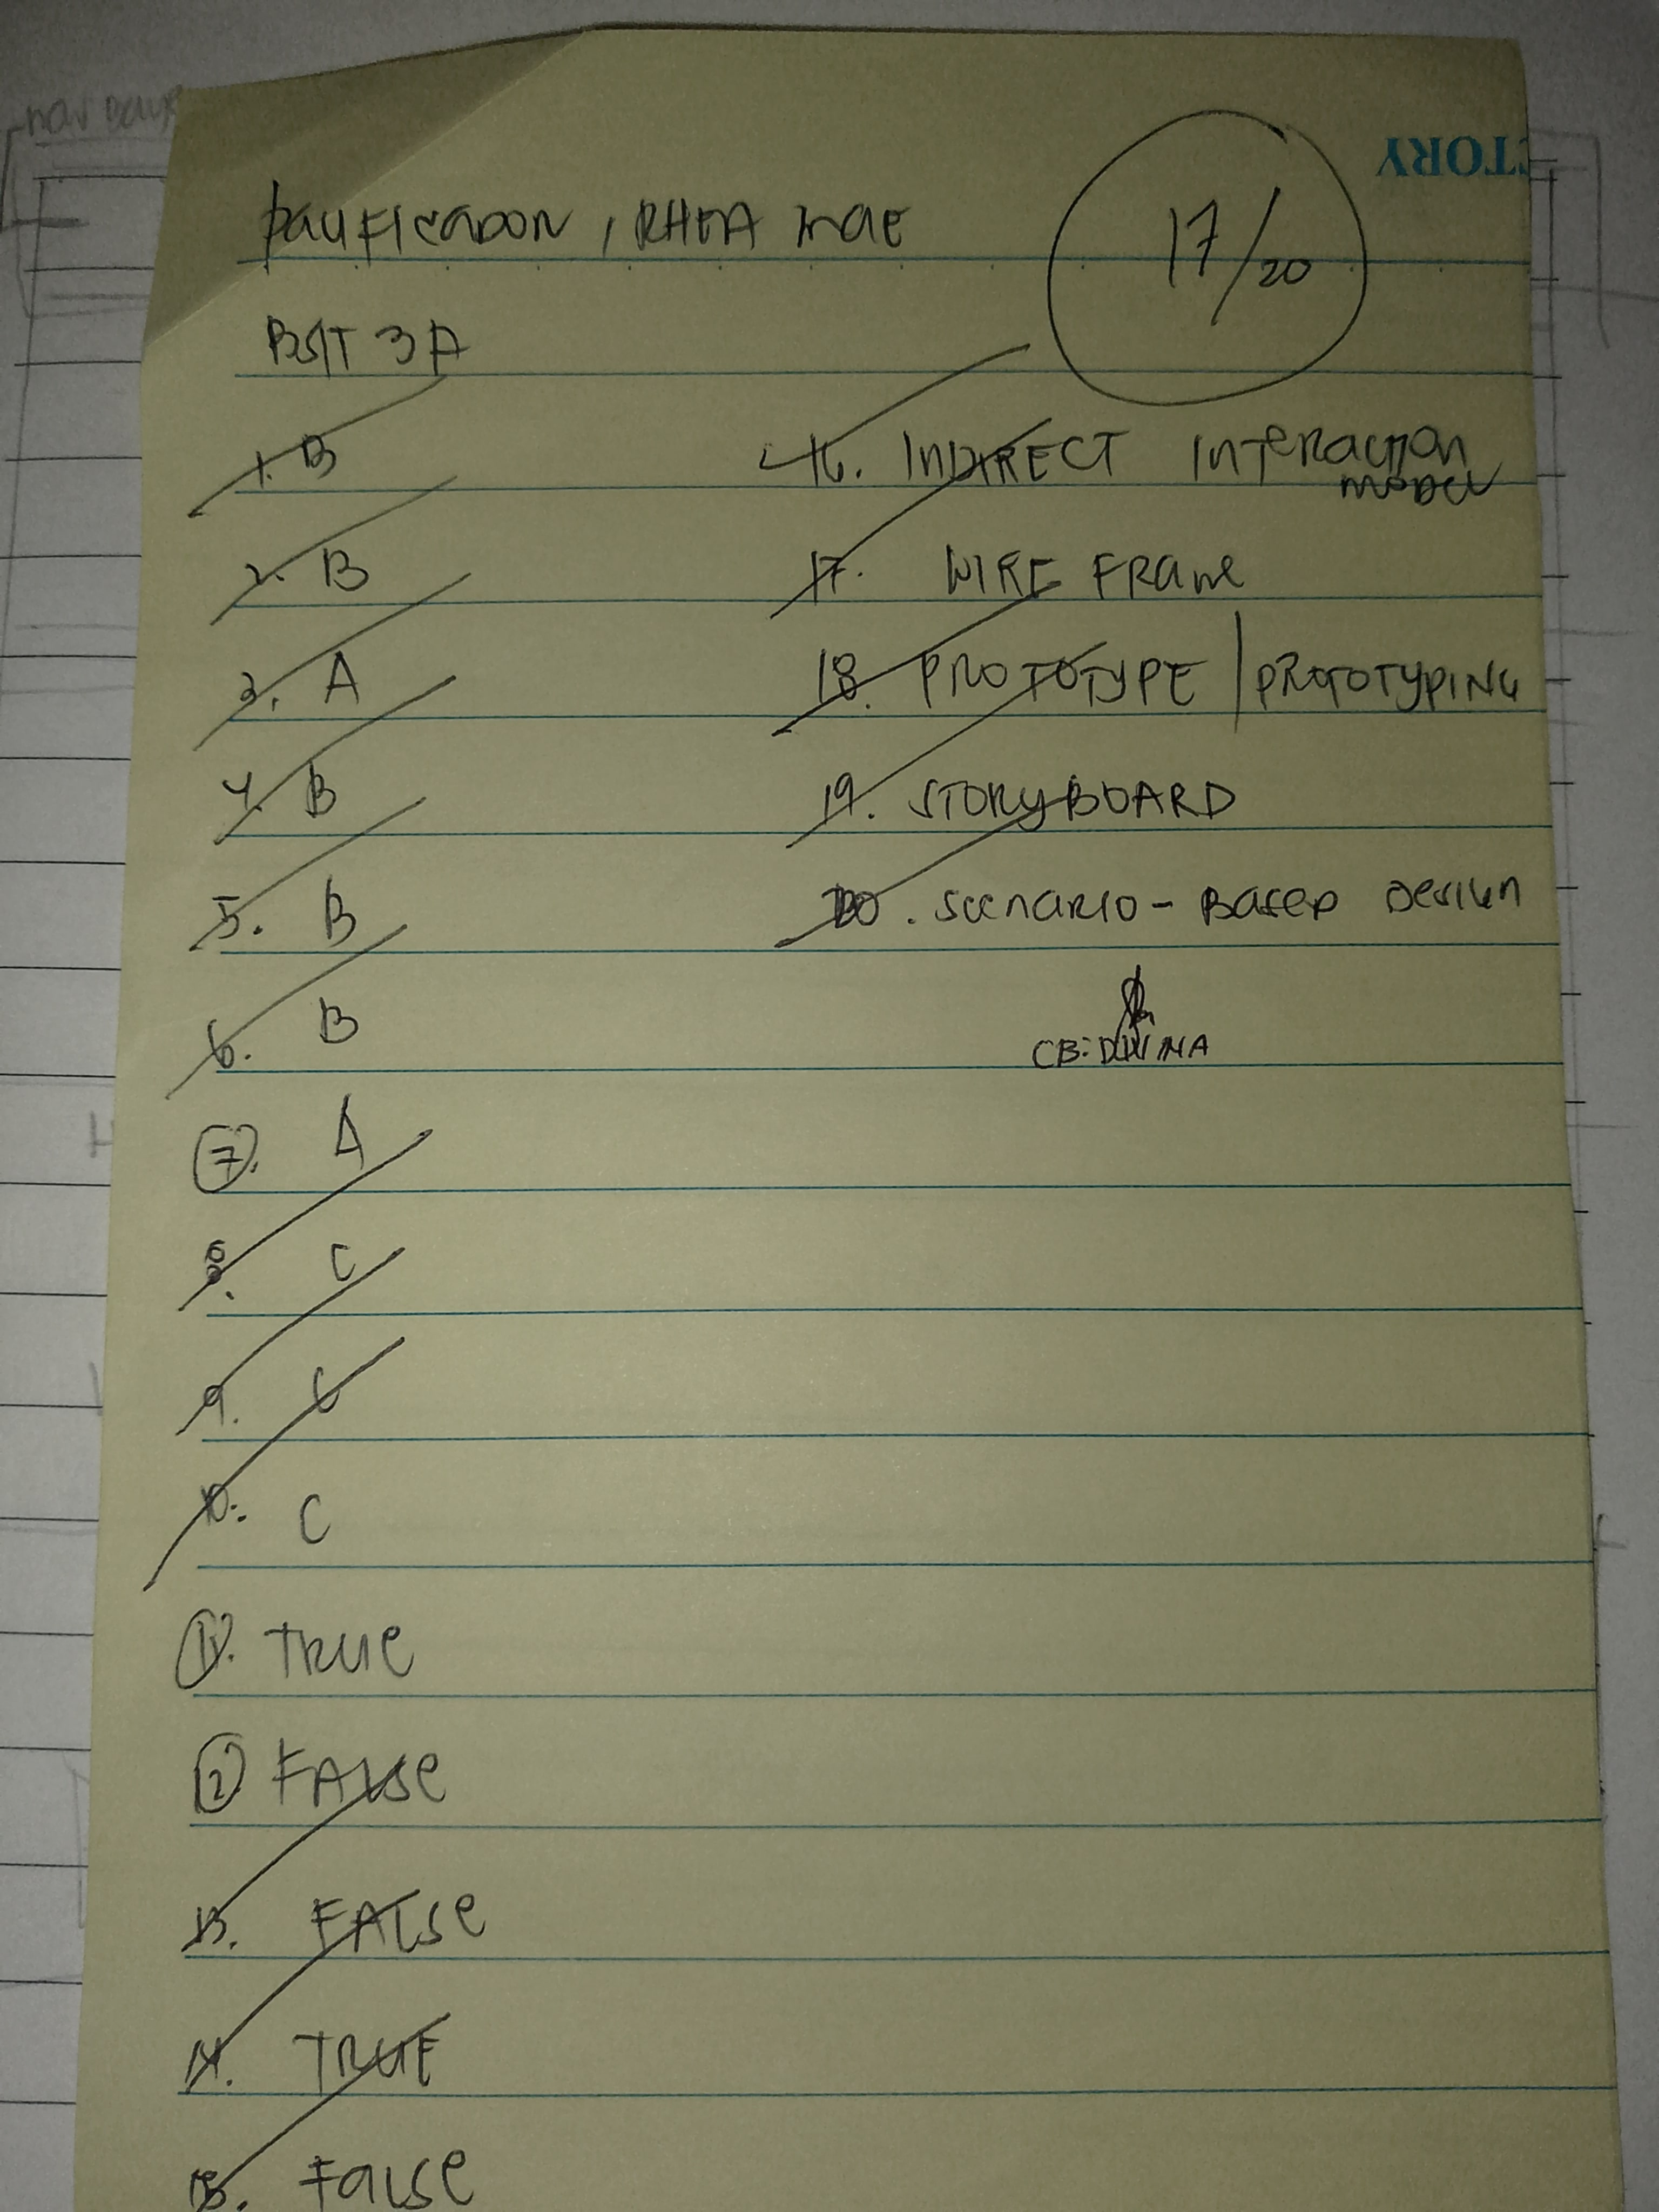 PACIFICADOR, RHEA MAE
17/20
BSIT 3A
1. B
2. B
3. A
4. B
5. B
6. B
7. A
8. C
9. C
10. C
11. TRUE
12 FALSE
13. FALSE
14. TRUE
15. FALSE
16. INDIRECT INTERACTION
MODEL
17. WIRE FRAME
18. PROTOTYPE / PROTOTYPING
19. STORYBOARD
20. SCENARIO-BASED DESIGN
CB: DIVINA
CTORY